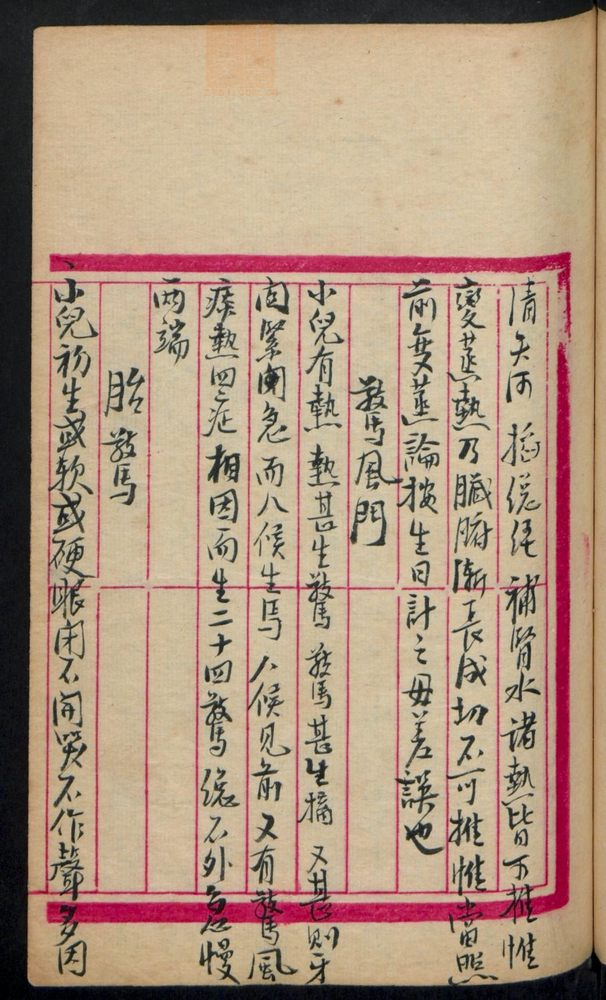 清天河 揺總經 補腎水 諸熱皆可推惟
變蒸熱乃臟腑漸長成切不可推惟當照
前變蒸論按生日計之毋差誤也
驚風門
小兒有熱熱甚生驚驚甚生搐又甚則牙
関緊闌急而八候生焉八候見前又有驚風
痰熱四症相因而生二十四驚總不外急慢
兩端
胎驚
小兒初生或軟或硬眼閉不開哭不作聲多因